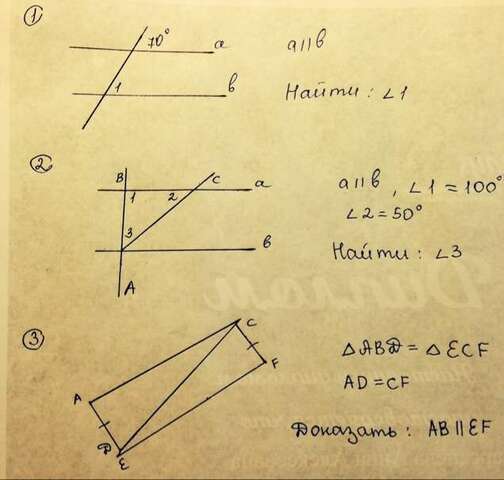 1
70°
a
a∥b
1
b
Найти: ∠1
2
B
C
1
2
a
a∥b, ∠1 = 100°
∠2 = 50°
3
b
Найти: ∠3
A
3
C
△ABD = △ECF
F
AD = CF
A
D
E
Доказать: AB∥EF